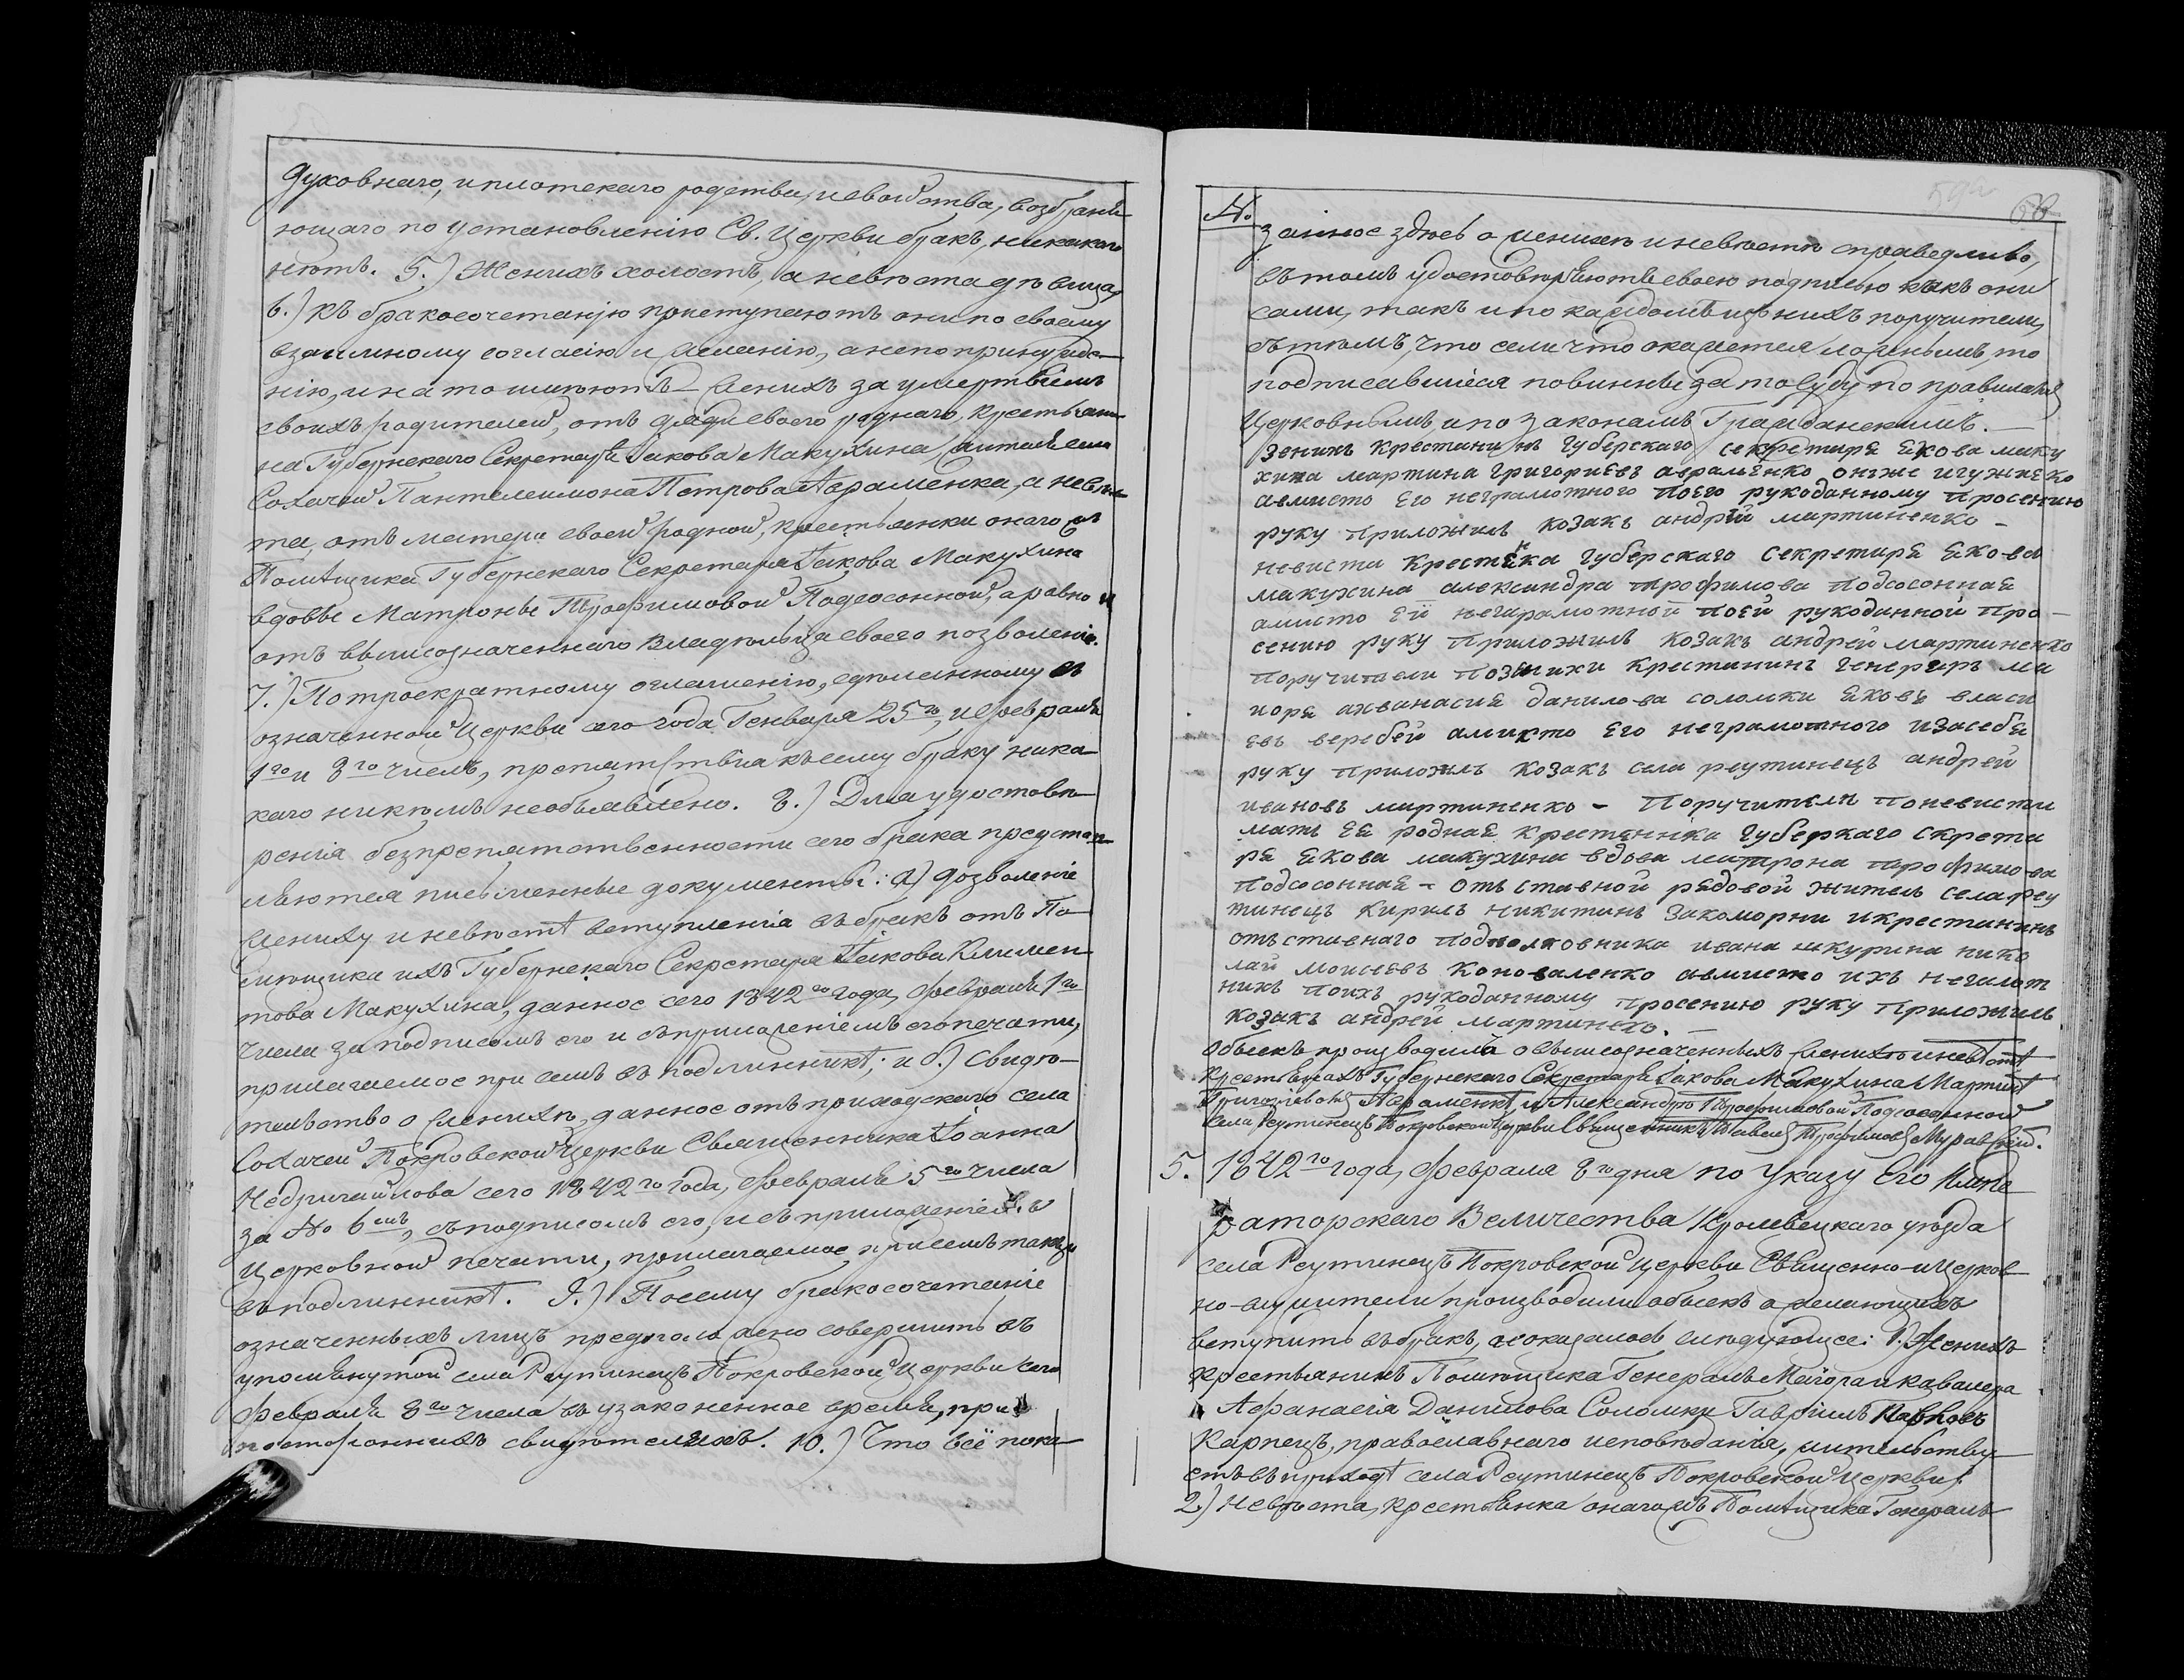 духовнаго, и плотскаго родства, и свойства, возбраня-
ющаго по установленію Св. Церкви бракъ, никакого
нѣтъ. 5.) Женихъ холостъ, а невѣста дѣвица,
6.) къ бракосочетанію приступаютъ они по своему
взаимному согласію и желанію, а не по принужде-
нію, и на то имѣютъ – женихъ за умертвіемъ
своихъ родителей, отъ дяди своего роднаго, крестьяни-
на Губернскаго Секретаря Іакова Макухина, жителя села
Сохачей Пантелеимона Петрова Авраменка, а невѣс-
та, отъ матери своей родной, крестьянки онаго жъ
Помѣщика Губернскаго Секретаря Іакова Макухина
вдовы Матроны Трофимовой Подсосонной, а равно и
отъ вышеозначеннаго Владѣльца своего позволеніе.
7.) По троекратному оглашенію, сдѣланному въ
означенной Церкви сего года Генваря 25го, и Февраля
1го и 8го числъ, препятствія къ сему браку ника-
кого никѣмъ необъявлено. 8.) Для удостовѣ-
ренія безпрепятственности сего брака представ-
ляются письменные документы: а) дозволеніе
жениху и невѣстѣ вступленія въ бракъ отъ По-
мѣщика ихъ Губернскаго Секретаря Іакова Климен-
това Макухина, данное сего 1842го года, Февраля 1го
числа за подписомъ его и съ приложеніемъ его печати,
прилагаемое при семъ въ подлинникѣ; и б.) Свидѣ-
тельство о женихѣ, данное отъ приходскаго села
Сохачей Покровской Церкви Священника Іоанна
Недригайлова сего 1842го года, Февраля 5го числа
за № 6мъ, съ подписомъ его, и съ приложеніемъ
церковной печати, прилагаемое при семъ также
въ подлинникѣ. 9.) Посему бракосочетаніе
означенныхъ лицъ предположено совершить въ
упомянутой села Реутинецъ Покровской Церкви сего
Февраля 8го числа въ узаконенное время, при
постороннихъ свидѣтеляхъ. 10.) Что всё пока-
4.
занное здѣсь о женихѣ и невѣстѣ справедливо,
въ томъ удостовѣряютъ своею подписью какъ они
сами, такъ и по каждомъ изъ нихъ поручители,
съ тѣмъ, что если что окажется ложнымъ, то
подписавшіеся повинны за то суду по правиламъ
Церковнымъ, и по законамъ Гражданскимъ. —
Зенихъ Крестанинъ Губерскаго секретиря Якова маку
хина мартина григориевъ авраменко онъже игужненко
авмисто Его неграмотного Поего рукоданному Просению
руку Приложилъ козакъ андрей мартиненко –
невиста Крестянка Губерскаго Секретиря Якова
макухина александра трофимова Подсосонная
амисто Ей неграмотной Поей рукоданной Про –
сению руку Приложилъ козакъ андрей мартиненко
Поручители Позинихи Крестининъ генерярь ма
иора ахванасия данилова соломки Яковъ власи
евъ веребей амисто Его неграмотного изасебя
руку Приложилъ козакъ села реутинецъ андрей
ивановъ мартиненко – Поручители Поневисти
мать Ея родная Крестянка Губеркаго Скрети
ря Якова макухина вдова матрона трофимова
Подсосонная – отъ ставной рядовой житель села реу
тинецъ Кирилъ никитинъ Закоморни икрестининъ
отъ ставнаго Подполковника ивана шкурина нико
лай моисеевъ Коноваленко авмисто ихъ неграмот
нихъ Поихъ рукоданному Просению руку Приложилъ
козакъ андрей мартиненко. –
Обыскъ производилъ о вышеозначенныхъ женихѣ и невѣстѣ
крестьянахъ Губернскаго Секретаря Іакова Макухина Мартинѣ
Григоріевѣ Авраменкѣ и Александрѣ Трофимовой Подсосонной
села Реутинецъ Покровской Церкви Священникъ Павелъ Трофимовъ Муравскій.
5. 1842го года, Февраля 8го дня по Указу Его Импе-
раторскаго Величества Кролевецкаго уѣзда
села Реутинецъ Покровской Церкви Священно-и Церков-
но-служители производили обыскъ о желающихъ
вступить въ бракъ, и оказалось слѣдующее: 1.) Женихъ
крестьянинъ Помѣщика Генералъ Маіора и кавалера
Афанасія Данилова Соломки Гавріилъ Іаковъ
Карпецъ, православнаго исповѣданія, жительству-
етъ въ приходѣ села Реутинецъ Покровской Церкви;
2.) Невѣста, крестьянка онагожъ Помѣщика Генералъ